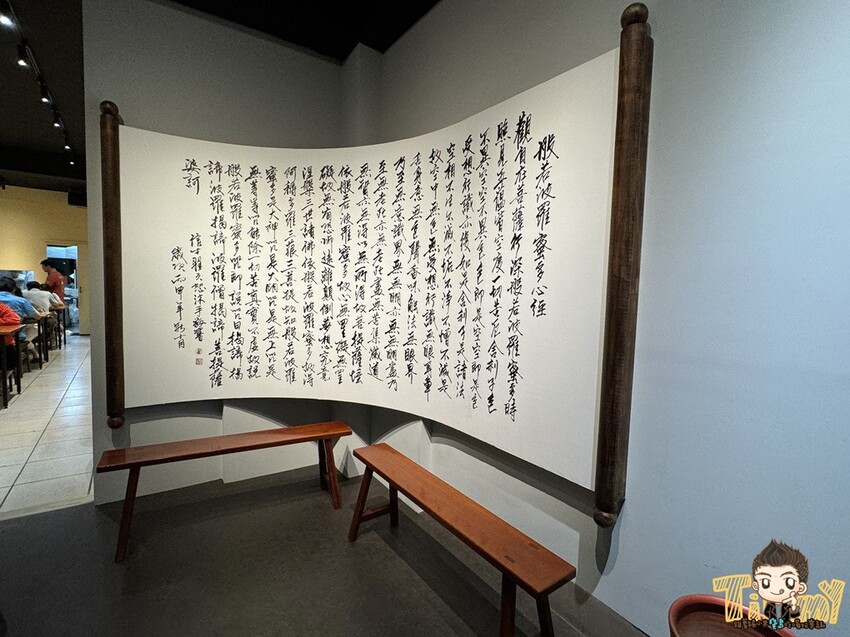 般若波羅蜜多心經
觀自在菩薩行深般若波羅蜜多時
照見五蘊皆空度一切苦厄舍利子色
不異空空不異色色即是空空即是色
受想行識亦復如是舍利子是諸法
空相不生不滅不垢不淨不增不減是
故空中無色無受想行識無眼耳鼻
舌身意無色聲香味觸法無眼界
乃至無意識界無無明亦無無明盡乃
至無老死亦無老死盡無苦集滅道
無智亦無得以無所得故菩提薩埵
依般若波羅蜜多故心無罣礙無罣
礙故無有恐怖遠離顛倒夢想究竟
涅槃三世諸佛依般若波羅蜜多故得
阿耨多羅三藐三菩提故知般若波羅
蜜多是大神咒是大明咒是無上咒是
無等等咒能除一切苦真實不虛故說
般若波羅蜜多咒即說咒曰揭諦揭
諦波羅揭諦波羅僧揭諦菩提薩
婆訶
沐手敬書
歲次丙申年